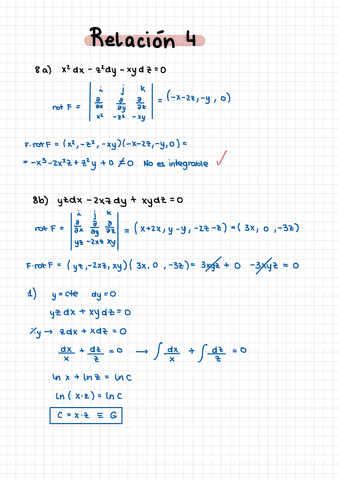 Relación 4
8a) x² dx - z² dy - xy dz = 0
rot F = | i j k ; ∂/∂x ∂/∂y ∂/∂z ; x² -z² -xy | = (-x-2z, -y, 0)
F·rot F = (x², -z², -xy)(-x-2z, -y, 0) =
= -x³-2x²z+z²y+0 ≠ 0 No es integrable ✓
8b) yz dx - 2xz dy + xy dz = 0
rot F = | i j k ; ∂/∂x ∂/∂y ∂/∂z ; yz -2xz xy | = (x+2x, y-y, -2z-z) = (3x, 0, -3z)
F·rot F = (yz, -2xz, xy)(3x, 0, -3z) = 3xyz + 0 - 3xyz = 0
1) y = cte dy = 0
yz dx + xy dz = 0
1/y → z dx + x dz = 0
dx/x + dz/z = 0 → ∫ dx/x + ∫ dz/z = 0
ln x + ln z = ln C
ln (x·z) = ln C
C = x·z ≡ G